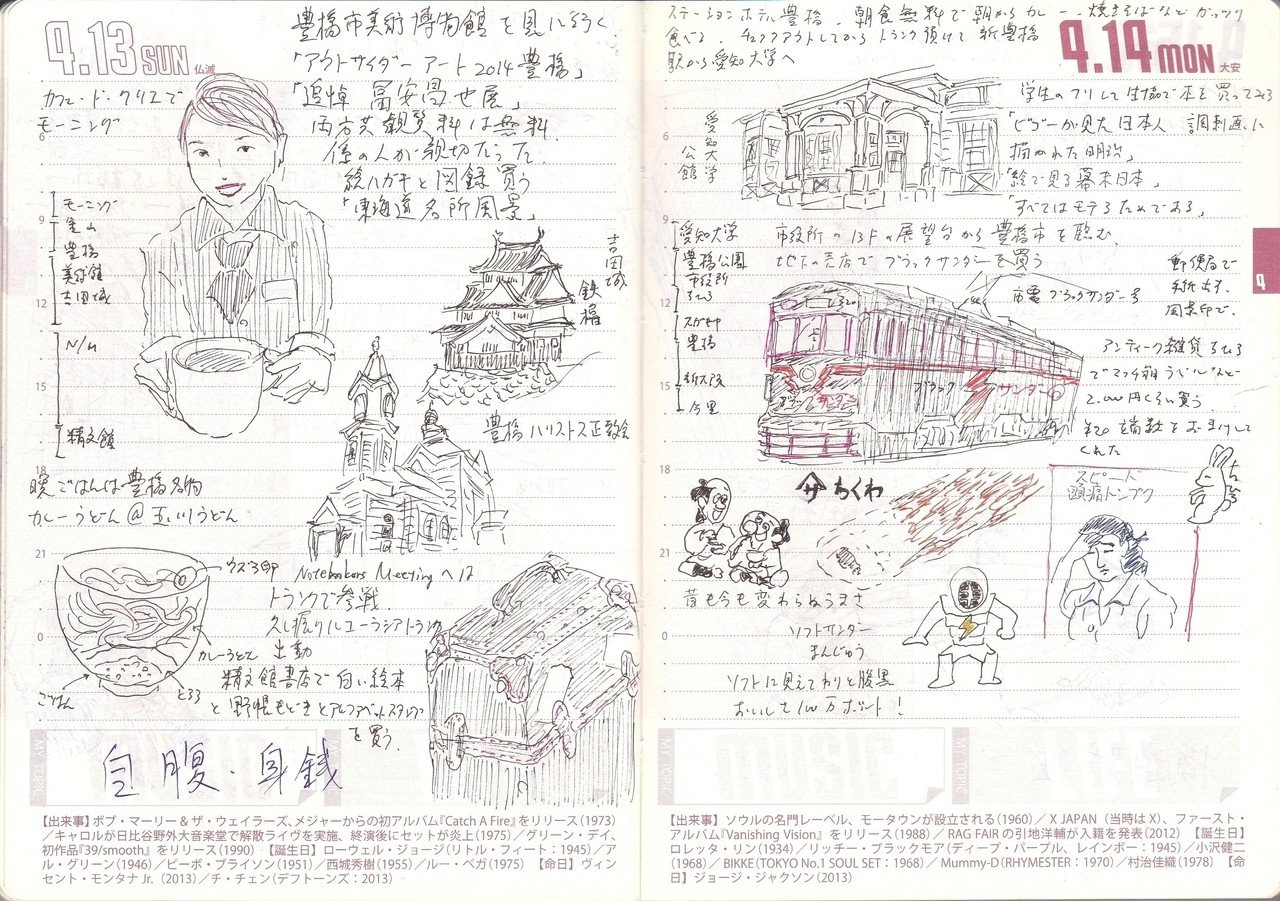 4.13 SUN 仏滅
豊橋市美術博物館を見に行く.
「アウトサイダーアート2014豊橋」
「追悼 冨安昌也展」
両方共観覧料は無料.
係の人が親切だった.
絵ハガキと図録買う
「東海道名所風景」
カフェ・ド・クリエで
モーニング
モーニング
金山
豊橋
美術館
吉田城
N/M
精文館
6
9
12
15
18
21
0
吉田城
鉄櫓
豊橋ハリストス正教会
晩ごはんは豊橋名物
カレーうどん@玉川うどん
ウズラ卵
カレーうどん
ごはん
とろろ
Notebookers Meetingへは
トランクで参戦.
久し振りにユーラシアトランク
出動
精文館書店で白い絵本
と野帳もどきとアルファベットスタンプ
を買う.
MY TOPIC
自腹・身銭
【出来事】ボブ・マーリー&ザ・ウェイラーズ、メジャーからの初アルバム『Catch A Fire』をリリース(1973)
/キャロルが日比谷野外大音楽堂で解散ライヴを実施、終演後にセットが炎上(1975)/グリーン・デイ、
初作品『39/smooth』をリリース(1990) 【誕生日】ローウェル・ジョージ(リトル・フィート:1945)/ア
ル・グリーン(1946)/ピーボ・ブライソン(1951)/西城秀樹(1955)/ルー・ベガ(1975) 【命日】ヴィン
セント・モンタナ Jr.(2013)/チ・チェン(デフトーンズ:2013)
ステーションホテル豊橋.朝食無料で朝からカレー.焼きそばなどガッツリ
食べる.チェックアウトしてからトランク預けて新豊橋
駅から愛知大学へ
4.14 MON 大安
学生のフリして生協で本を買ってみる
「ビゴーが見た日本人 諷刺画に
描かれた明治」
「絵で見る幕末日本」
「すべてはモテるためである」
愛知大学
公館
6
9
12
15
18
21
0
愛知大学
豊橋公園
市役所
スガキヤ
豊橋
新大阪
今里
市役所の13Fの展望台から豊橋市を臨む.
地下の売店でブラックサンダーを買う
市電ブラックサンダー号
郵便局で
風景印で.
ブラック サンダー
アンティーク雑貨
でマッチ箱ラベルなど
2,000円くらい買う.
端数をおまけして
くれた
ヤマサちくわ
昔も今も変わらぬうまさ
スピード
頭痛トンプク
ソフトサンダー
まんじゅう
ソフトに見えてわりと腹黒
おいしさ100万ボルト!
4
MY TOPIC
【出来事】 ソウルの名門レーベル、モータウンが設立される(1960)/X JAPAN(当時は X)、ファースト・
アルバム『Vanishing Vision』をリリース(1988)/RAG FAIR の引地洋輔が入籍を発表(2012) 【誕生日】
ロレッタ・リン(1934)/リッチー・ブラックモア(ディープ・パープル、レインボー:1945)/小沢健二
(1968)/BIKKE(TOKYO No.1 SOUL SET:1968)/Mummy-D(RHYMESTER:1970)/村治佳織(1978) 【命
日】ジョージ・ジャクソン(2013)